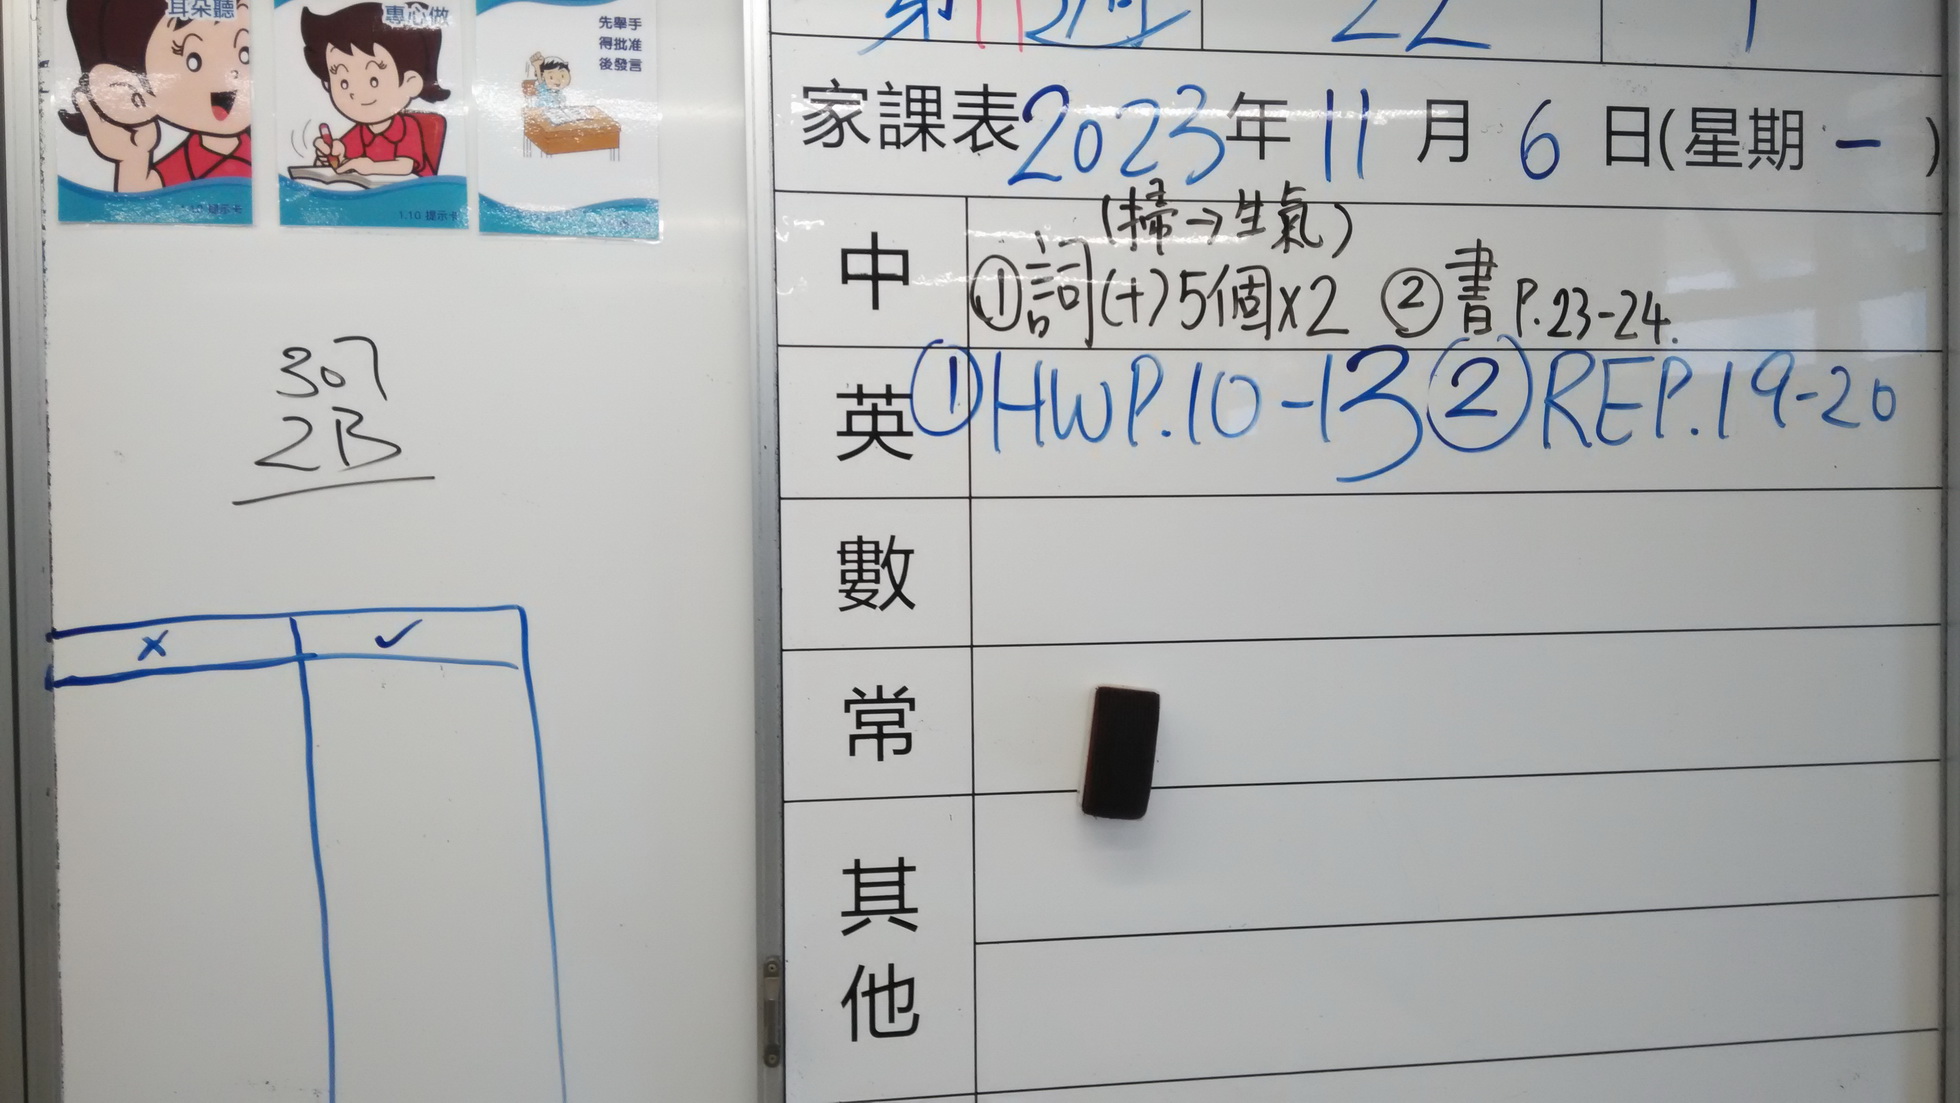 耳朵聽
專心做
先舉手
得批准
後發言
1.10 提示卡
1.10 提示卡
307
2B
× ✓
22 1
家課表 2023年 11 月 6 日(星期 一 )
(掃→生氣)
中 ①詞(十)5個×2 ②書P.23-24.
英 ①HWP.10-13 ②REP.19-20
數
常
其他